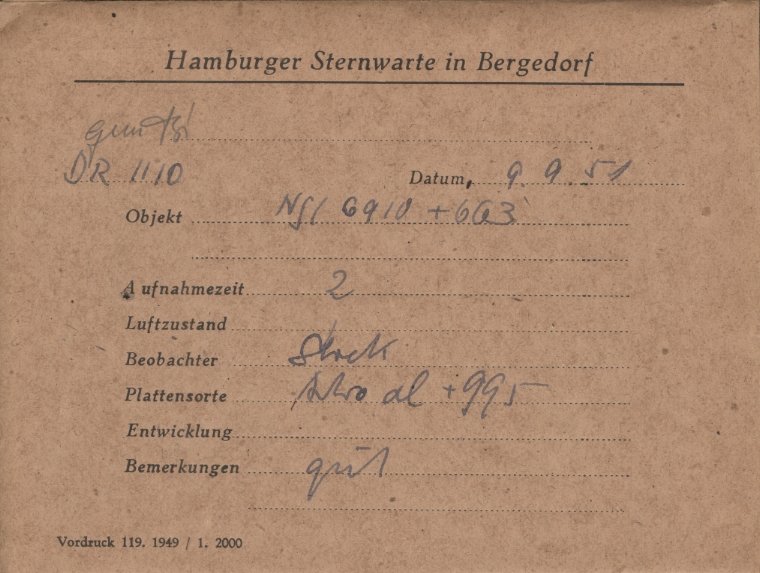 Hamburger Sternwarte in Bergedorf
DR 1110
Datum, 9. 9. 51
Objekt 6910 + 663
Aufnahmezeit 2
Luftzustand
Beobachter
Plattensorte Astro + 995
Entwicklung
Bemerkungen gut
Vordruck 119. 1949 / 1. 2000